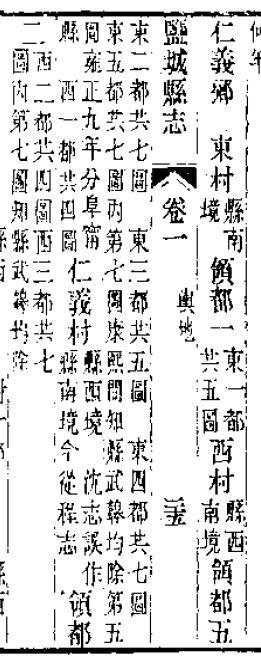 仁義鄉 東村縣南境 領都一東一都共五圖 西村縣西南境 領都五
鹽城縣志 卷一 輿地
東二都共七圖 東三都共五圖 東四都共七圖
東五都共七圖內第七圖康熙間知縣武韓均除第五
圖雍正九年分阜甯
縣 西一都共四圖 仁義村縣西境沈志誤作縣南境今從程志 領都
二西二都共四圖西三都共七
圖內第七圖知縣武韓均除